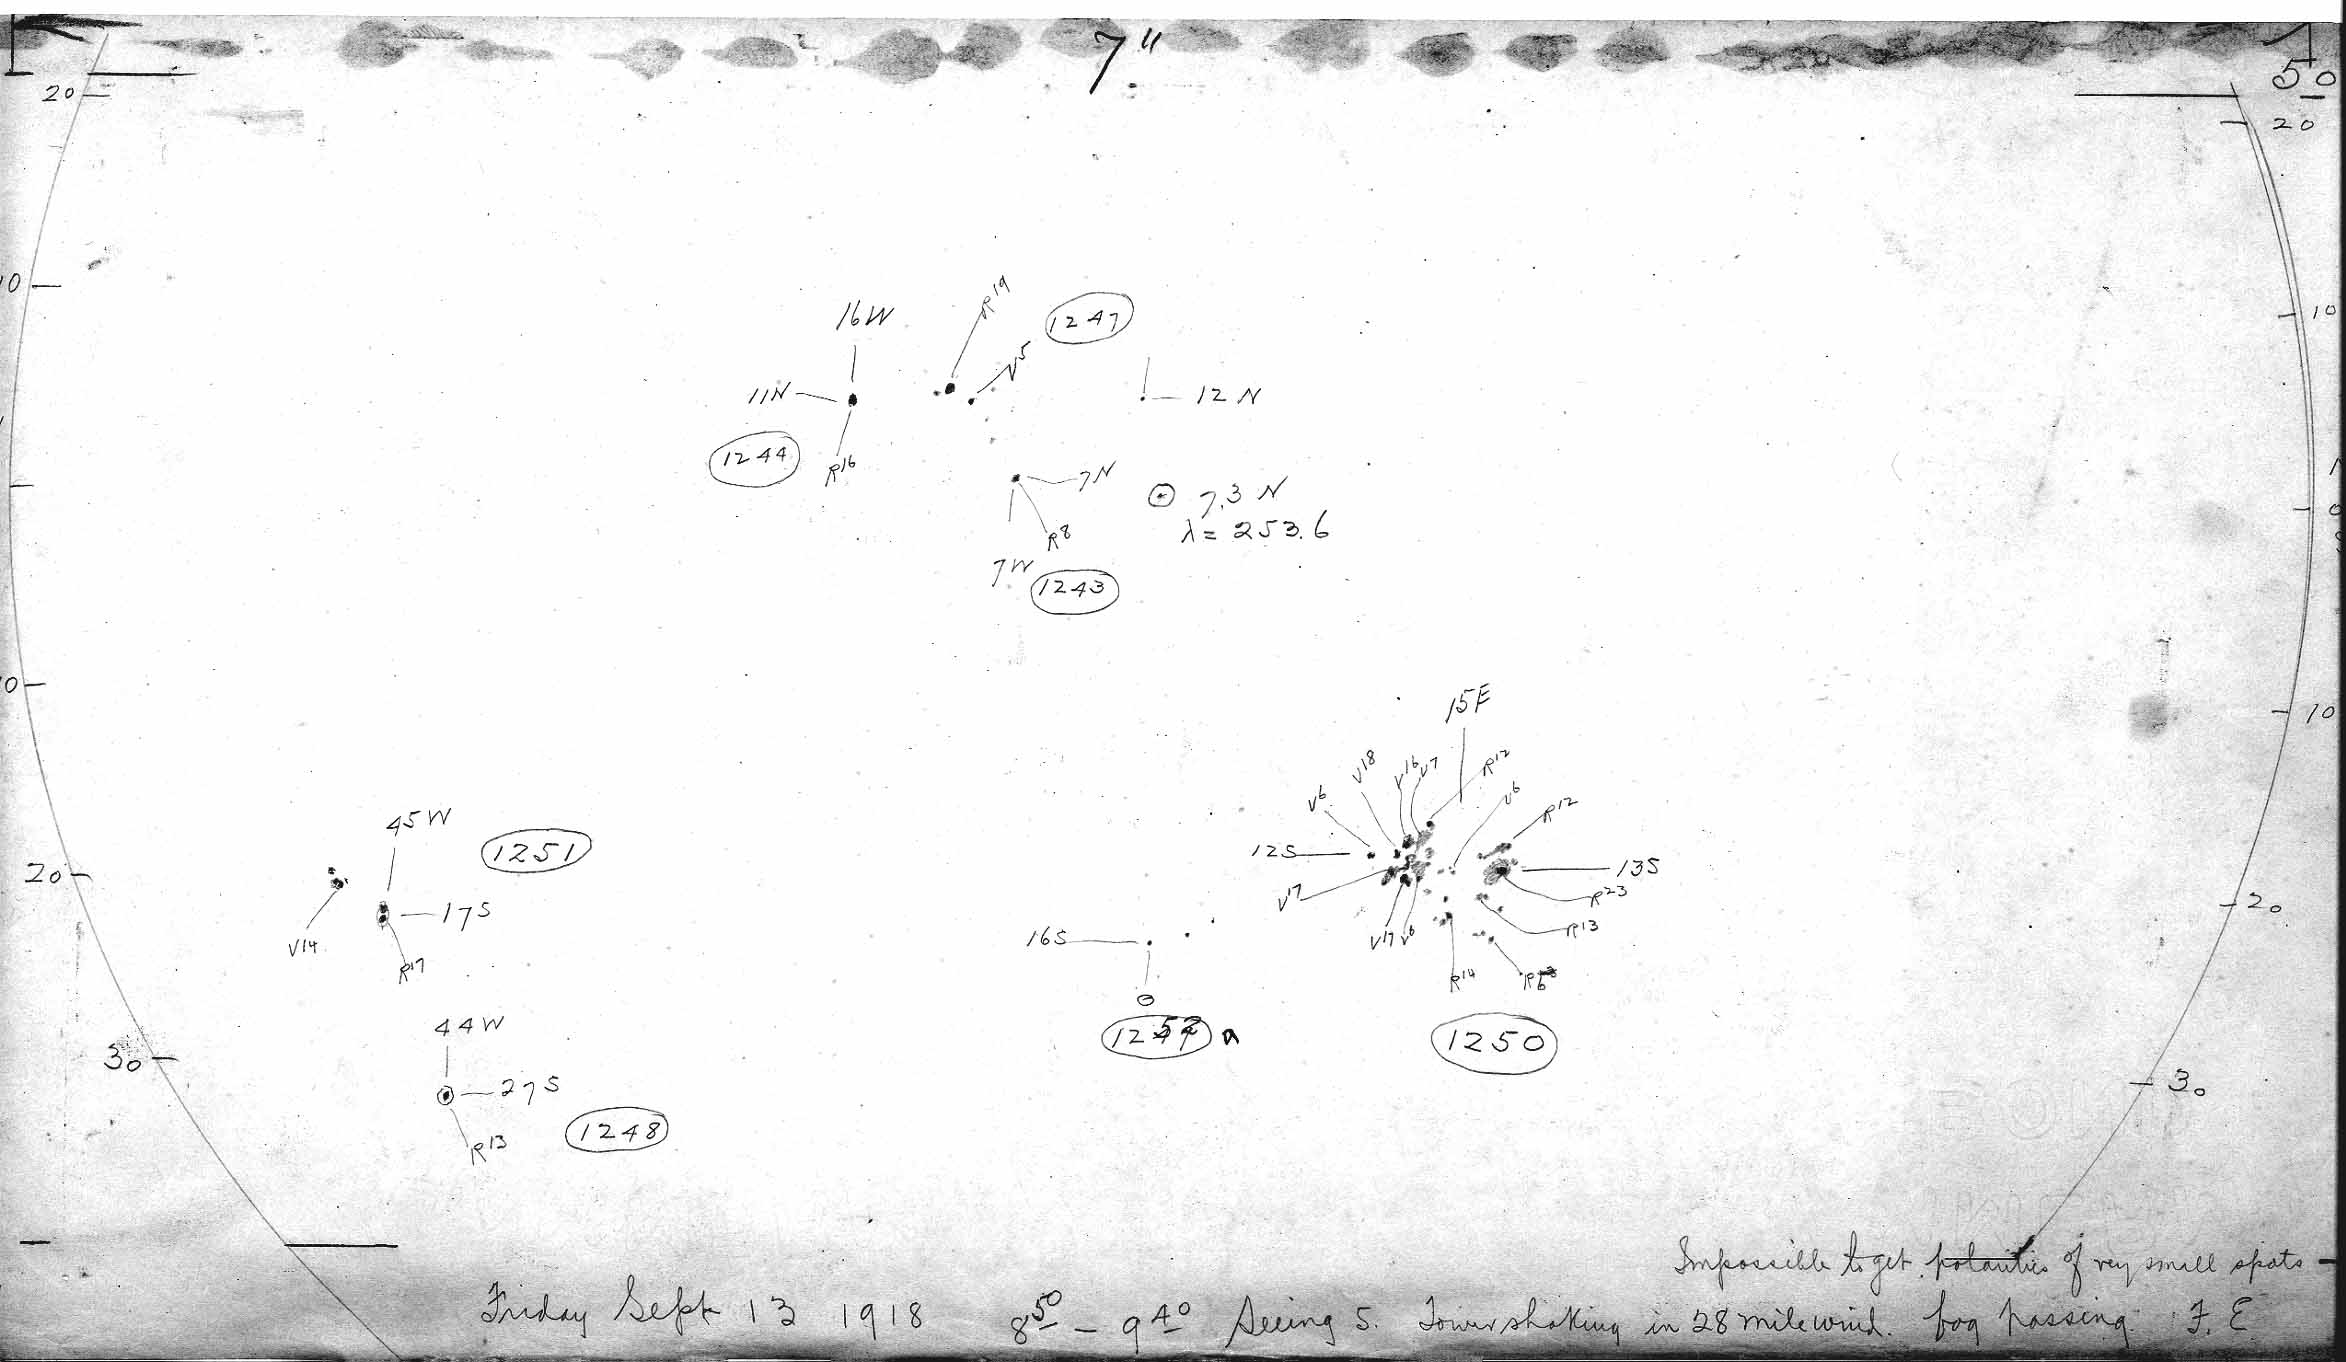 7"
50
20
20
10
R19
16W
1247
V5
11N
12 N
1244
R16
7N
7.3 N
λ= 253.6
R8
7W
1243
0
10
15E
V18
V16
V7
R12
V6
V6
R12
45W
1251
12S
13S
20
V17
R23
20
17S
V14
R17
16S
V17
V6
R13
R14
44W
1250
30
30
27S
1248
R13
Impossible to get polarities of very small spots
Friday Sept 13 1918 8 50 - 9 40 Seeing 5. Tower shaking in 28 mile wind. fog passing. F. E.